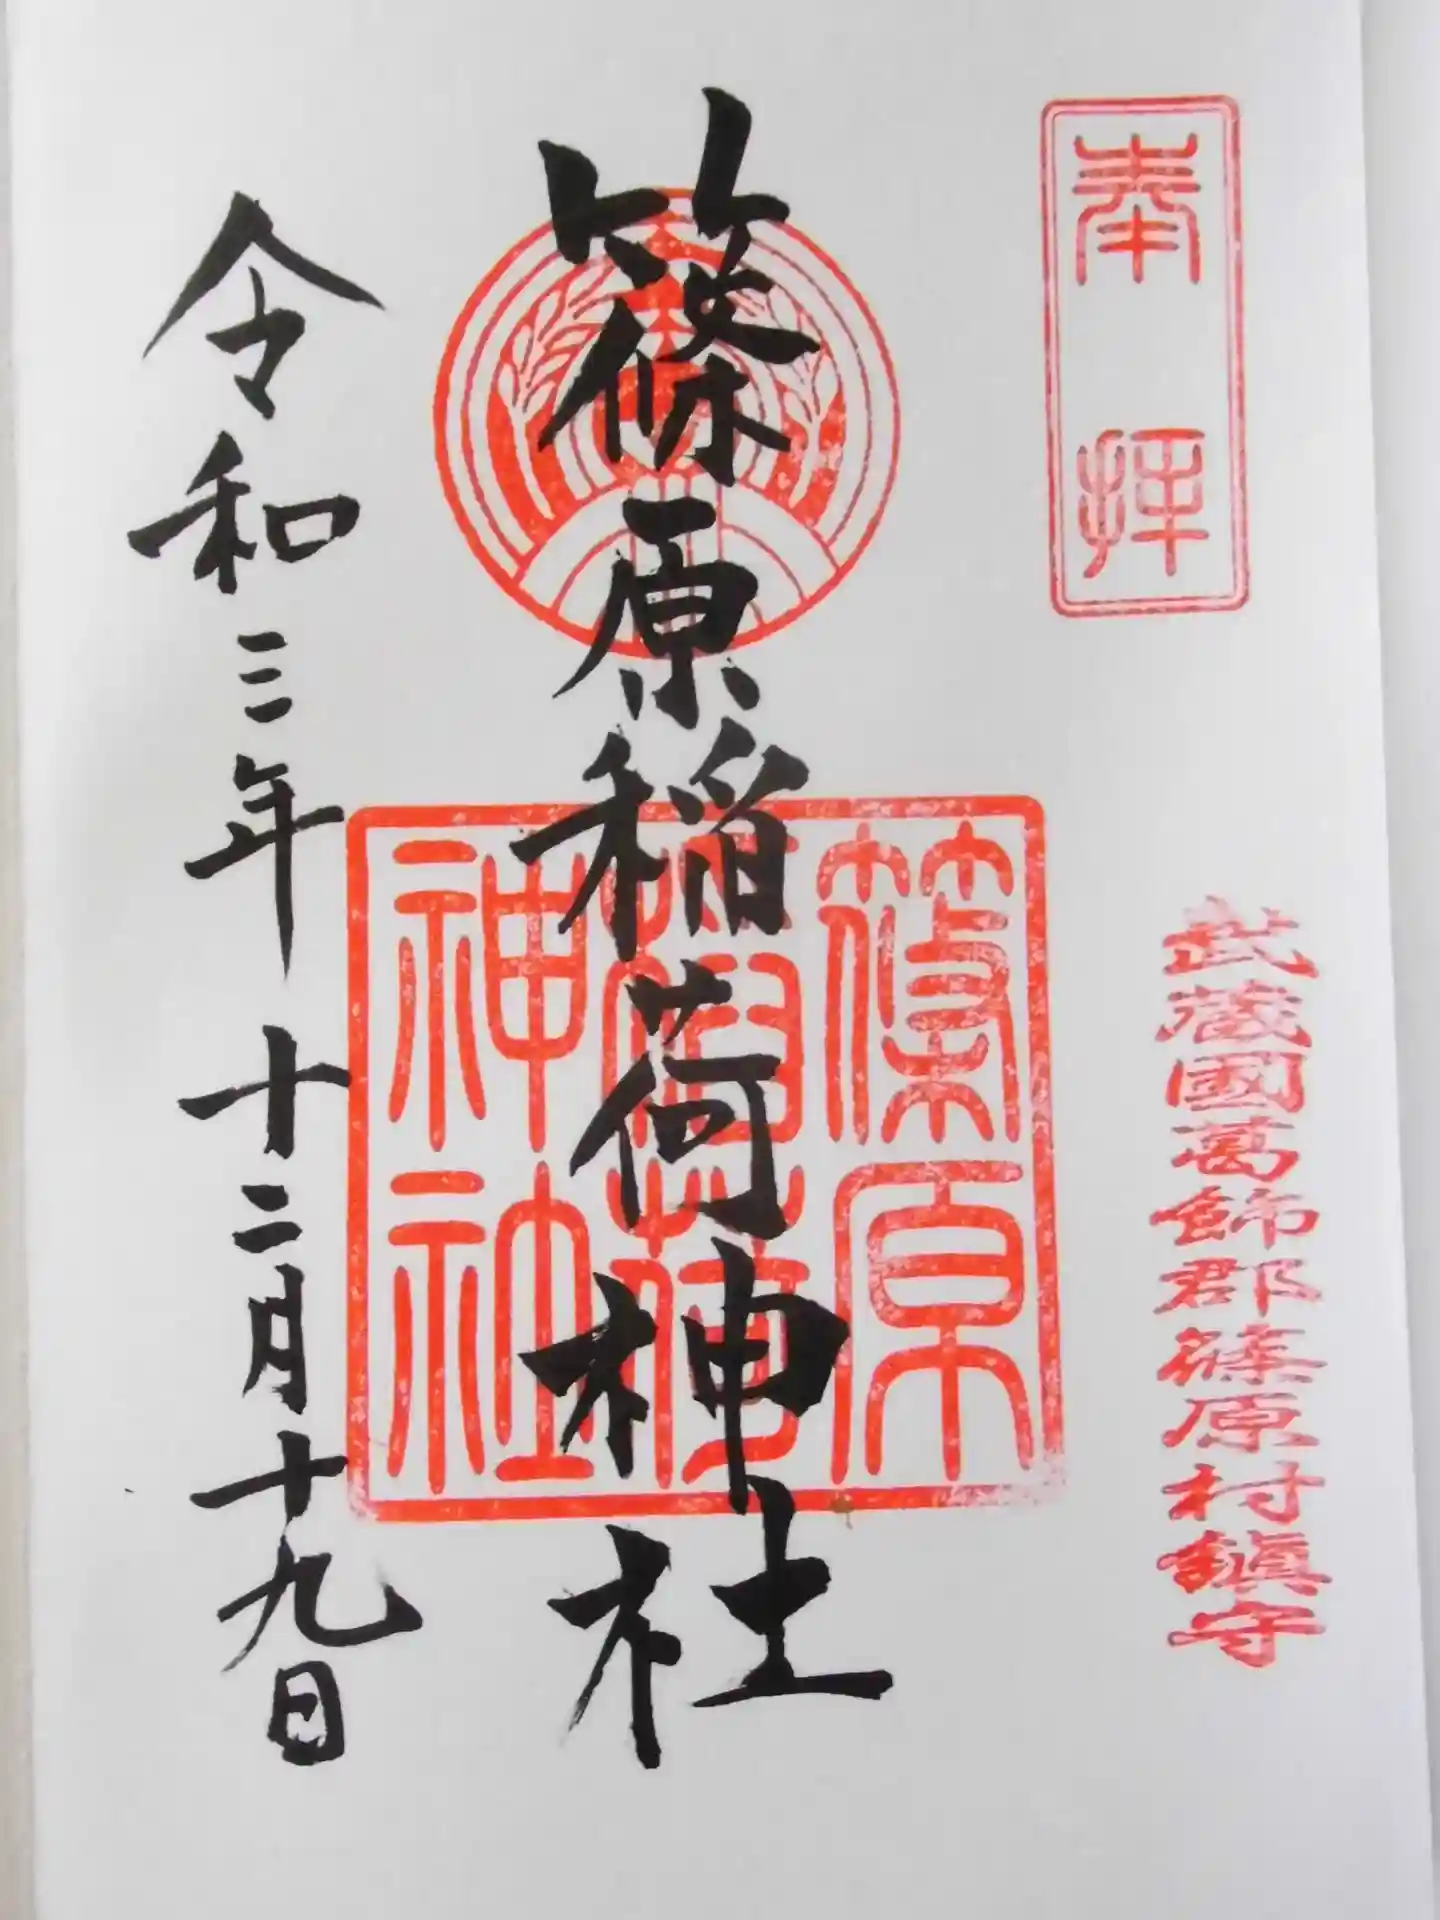 奉拝
武蔵國葛飾郡篠原村鎮守
篠原稲荷神社
篠原
稲荷
神社
令和三年十二月十九日